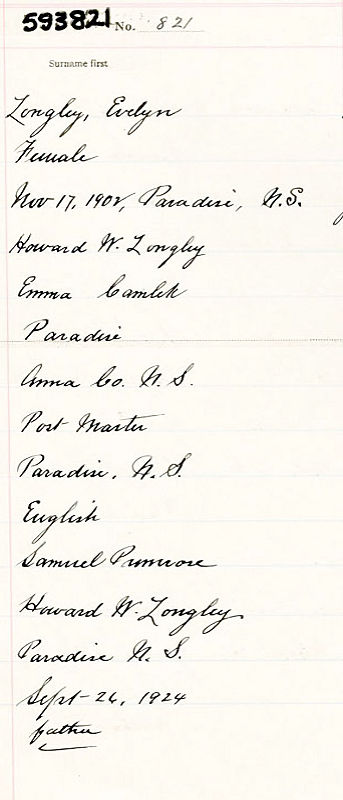 593821 No. 821
Surname first
Longley, Evelyn
Female
Nov 17, 1902, Paradise, N.S.
Howard W. Longley
Emma
Paradise
Anna Co. N. S.
Post Master
Paradise, N.S.
English
Samuel Primrose
Howard W. Longley
Paradise N. S.
Sept-26, 1924
father